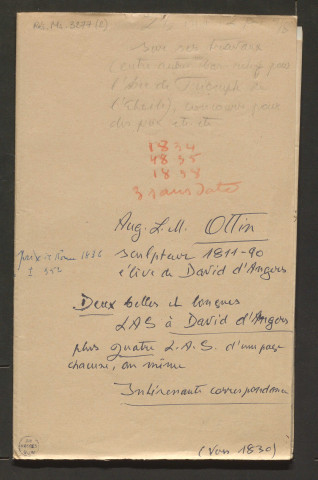 Rés. Ms. 3277 (2)
sur ses travaux
(entre autres bas-relief pour
l'Arc de Triomphe de
l'Etoile), concours pour
du prix etc etc
1834
1835
1838
3 sans date
Aug. L. M. Ottin
sculpteur 1811-90
élève de David d'Angers
Prix de Rome 1836
Deux belles et longues
LAS à David d'Angers
plus quatre L.A.S. d'une page
chacune, au même
Intéressante correspondance
(Vers 1830)